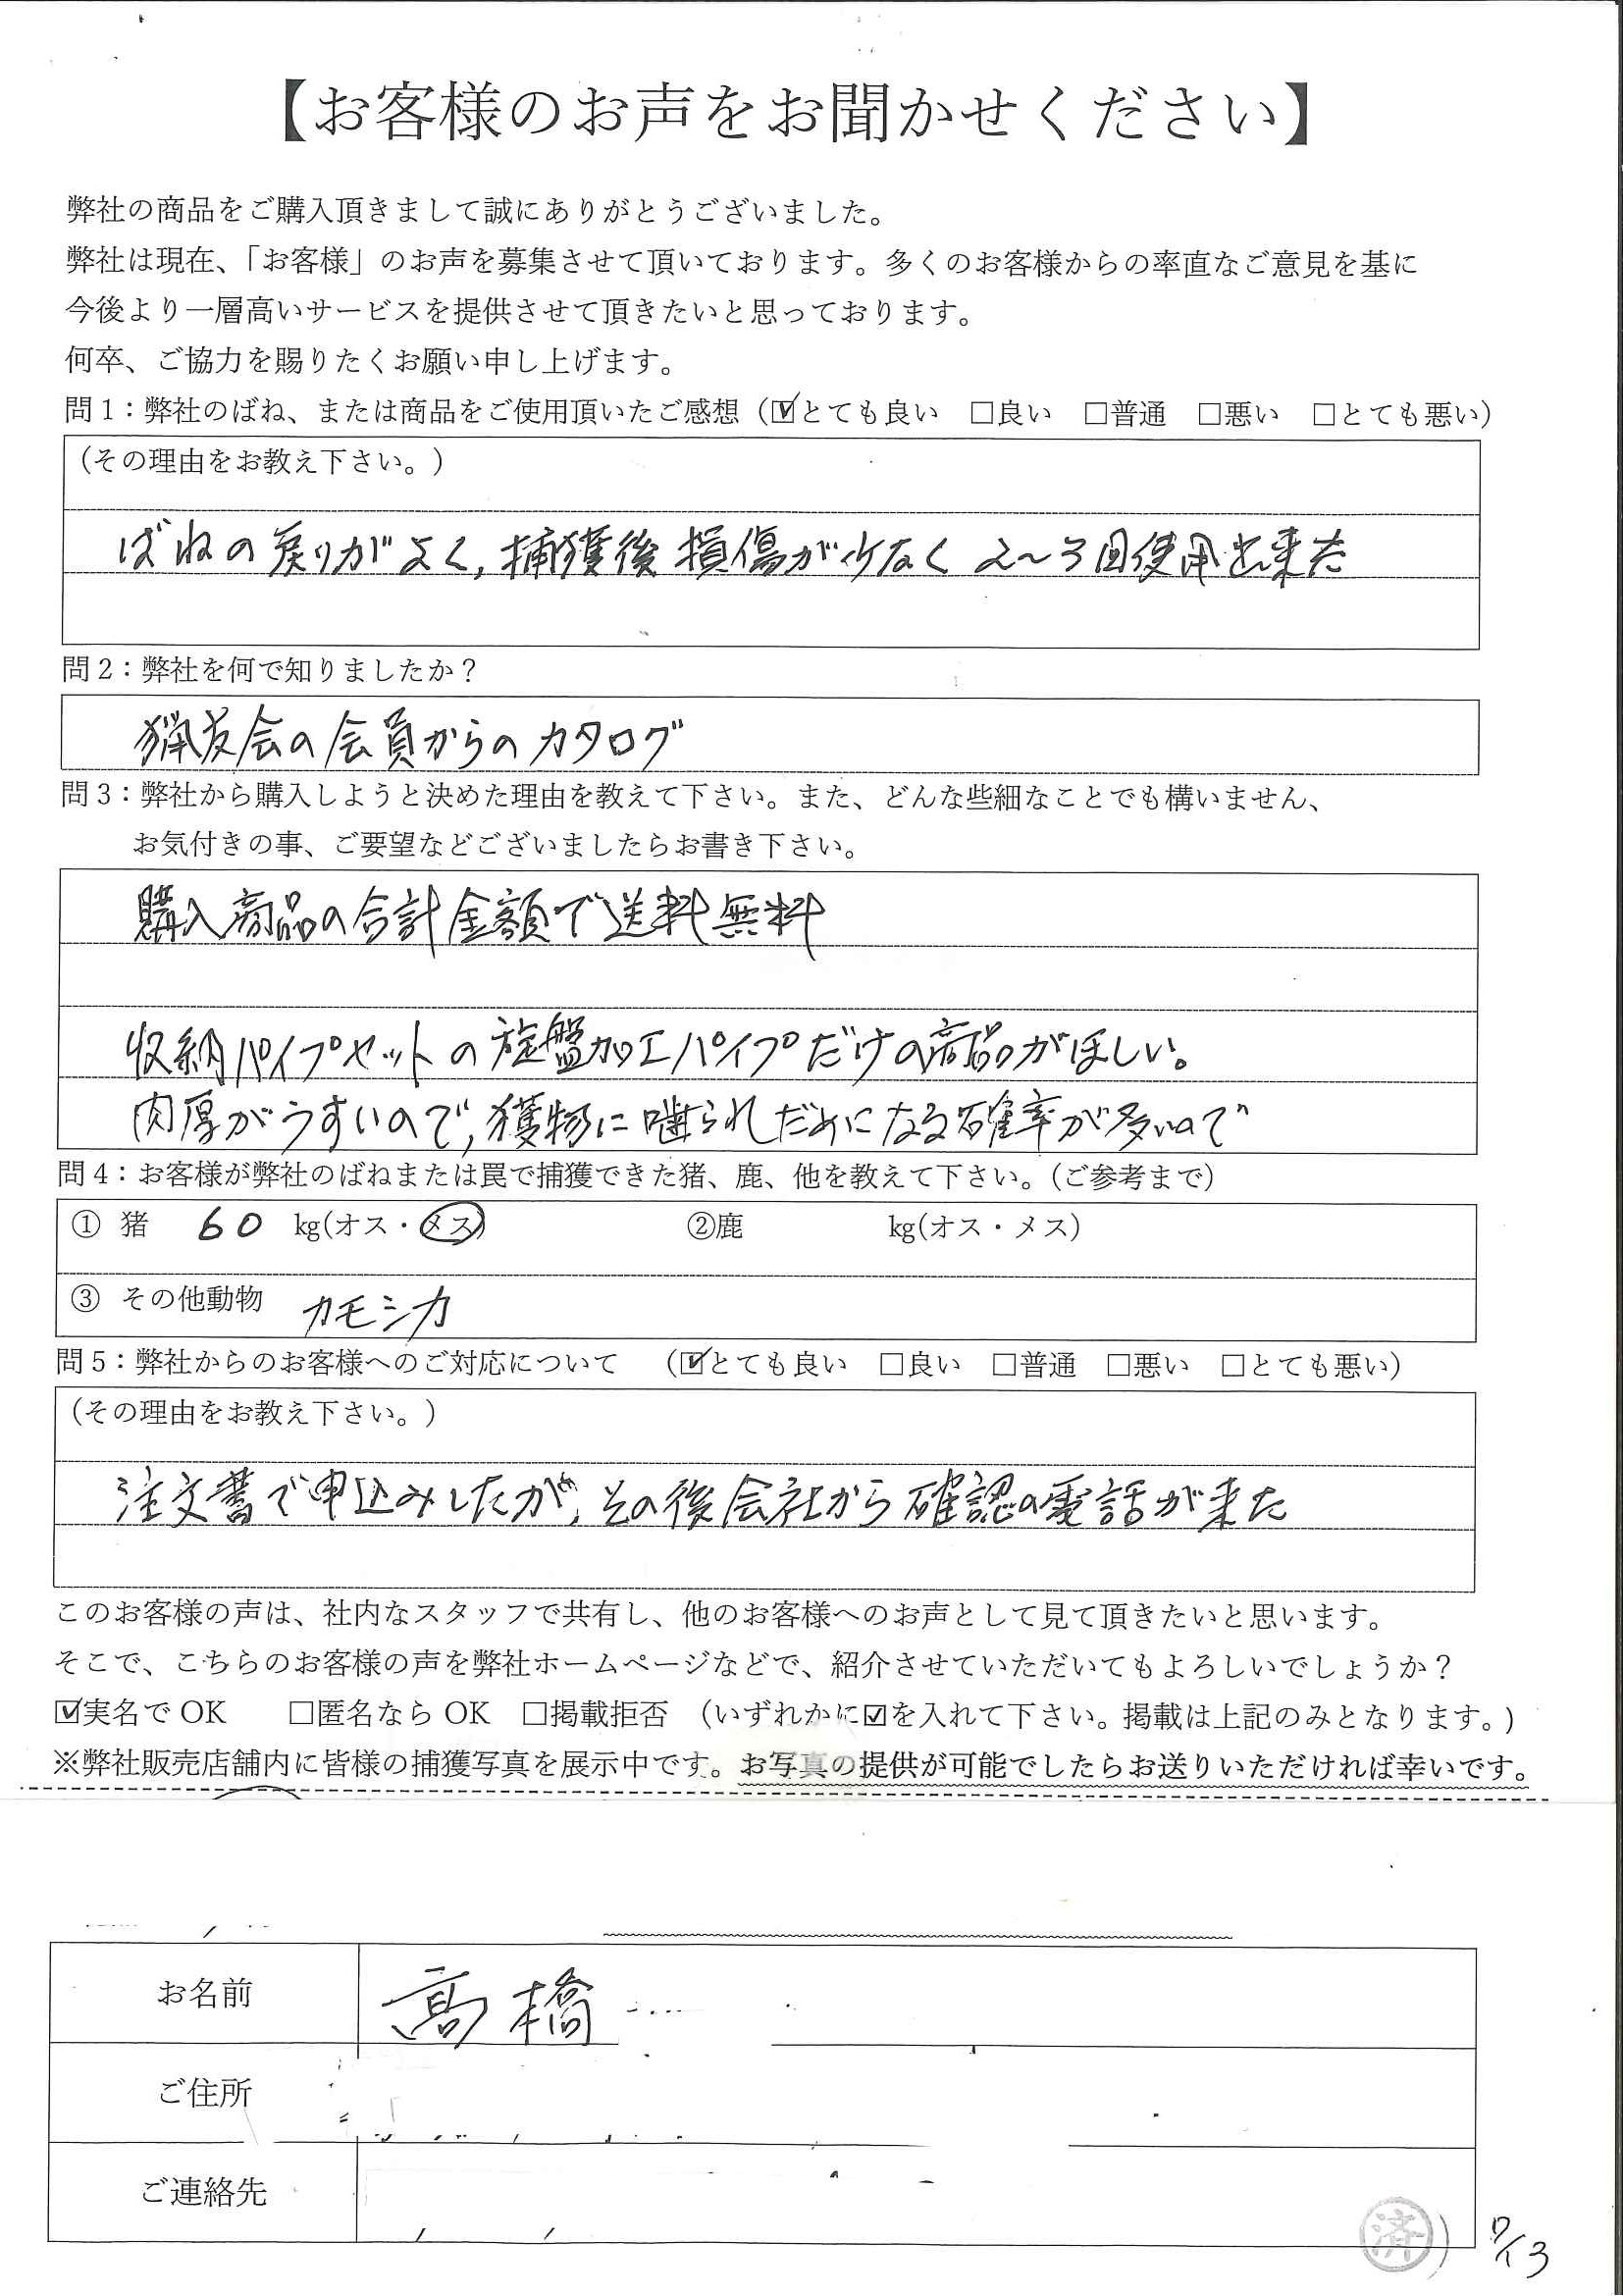 【お客様のお声をお聞かせください】
弊社の商品をご購入頂きまして誠にありがとうございました。
弊社は現在、「お客様」のお声を募集させて頂いております。多くのお客様からの率直なご意見を基に
今後より一層高いサービスを提供させて頂きたいと思っております。
何卒、ご協力を賜りたくお願い申し上げます。
問1：弊社のばね、または商品をご使用頂いたご感想（☑とても良い　□良い　□普通　□悪い　□とても悪い）
（その理由をお教え下さい。）
ばねの戻りがよく,捕獲後損傷が少なく2〜3回使用出来た
問2：弊社を何で知りましたか？
猟友会の会員からのカタログ
問3：弊社から購入しようと決めた理由を教えて下さい。また、どんな些細なことでも構いません、
お気付きの事、ご要望などございましたらお書き下さい。
購入商品の合計金額で送料無料
収納パイプセットの旋盤加工パイプだけの商品がほしい。
肉厚がうすいので,獲物に噛られだめになる確率が多いので
問4：お客様が弊社のばねまたは罠で捕獲できた猪、鹿、他を教えて下さい。（ご参考まで）
① 猪　60　kg(オス・メス)　②鹿　kg(オス・メス)
③ その他動物　カモシカ
問5：弊社からのお客様へのご対応について　（☑とても良い　□良い　□普通　□悪い　□とても悪い）
（その理由をお教え下さい。）
注文書で申込みしたが,その後会社から確認の電話が来た
このお客様の声は、社内なスタッフで共有し、他のお客様へのお声として見て頂きたいと思います。
そこで、こちらのお客様の声を弊社ホームページなどで、紹介させていただいてもよろしいでしょうか？
☑実名で OK　□匿名なら OK　□掲載拒否　（いずれかに☑を入れて下さい。掲載は上記のみとなります。）
※弊社販売店舗内に皆様の捕獲写真を展示中です。お写真の提供が可能でしたらお送りいただければ幸いです。
お名前　高橋
ご住所
ご連絡先
済
7/13